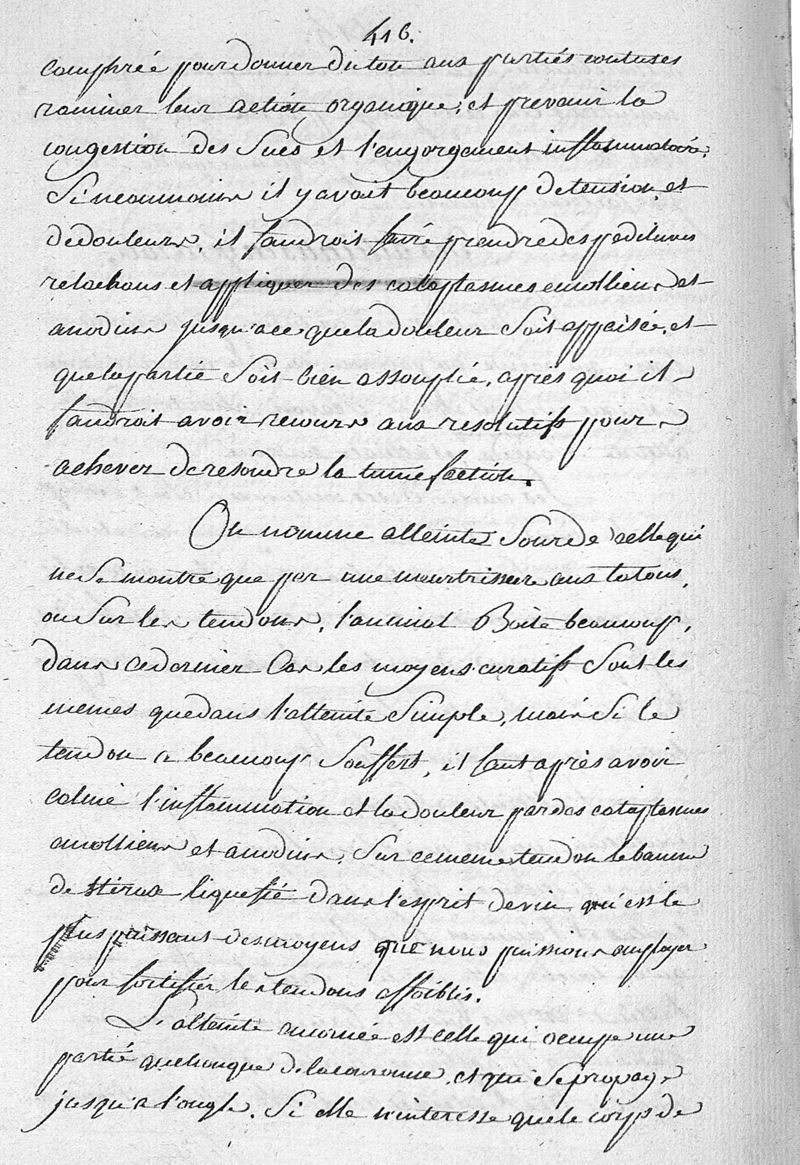 416.
comphrée pour donner du ton aux parties contuses
ranimer leur action organique, et prevenir la
congestion des Sucs et l'engorgement inflammatoire.
Si neanmoins il y avoit beaucoup de tension, et
de douleurs, il faudroit faire prendre des pediluves
relachans et appliquer des cataplasmes emolliens et
anodins jusqu'a ce que la douleur Soit appaisée, et
que la partie Soit bien assouplie, après quoi il
faudroit avoir recours aux resolutifs pour
achever de resoudre la tumefaction.
On nomme atteinte Sourde celle qui
ne Se montre que par une meurtrissure aux talons,
ou Sur les tendons, l'animal Boite beaucoup,
dans ce dernier Cas les moyens curatifs Sont les
memes que dans l'atteinte Simple, mais Si le
tendon a beaucoup Souffert, il faut après avoir
calmé l'inflammation et la douleur par des cataplasmes
emolliens et anodins, Sur ce meme tendon le baume
de Stirax liquefié dans l'esprit de vin qui est le
plus puissant des moyens que nous puissions employer
pour fortifier les tendons affoiblis.
L'atteinte encornée est celle qui occupe une
partie quelconque de la couronne, et qui Se propage
jusqu'a l'ongle. Si elle n'interesse que le corps de